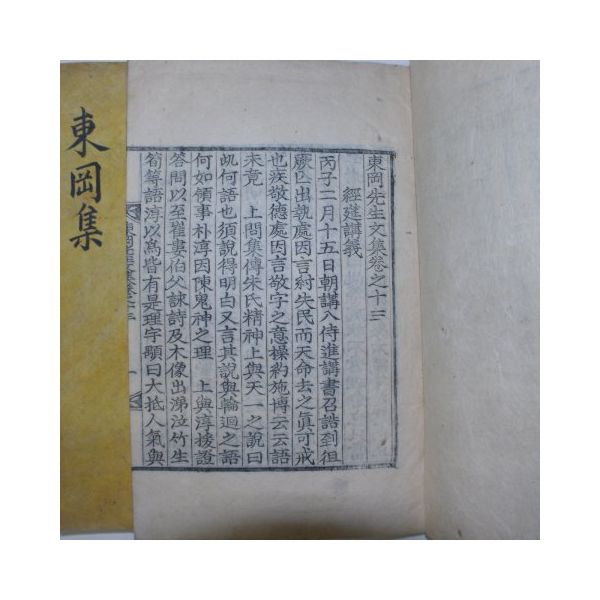 東岡先生文集卷之十三
經筵講義
丙子二月十五日朝講入侍進講書召誥到徂
厥亡出執處因言紂失民而天命去之眞可戒
也疾敬德處因言敬字之意操約施博云云語
未竟 上問集傳朱氏精神上與天一之說曰
此何語也須說得明白又言其說與輪迴之語
何如領事朴淳因陳鬼神之理 上與淳援證
答問以至瞿婁伯父諫詩及木像出涕泣竹生
筍等語淳以爲皆有是理宇顒曰大抵人氣與
東岡集